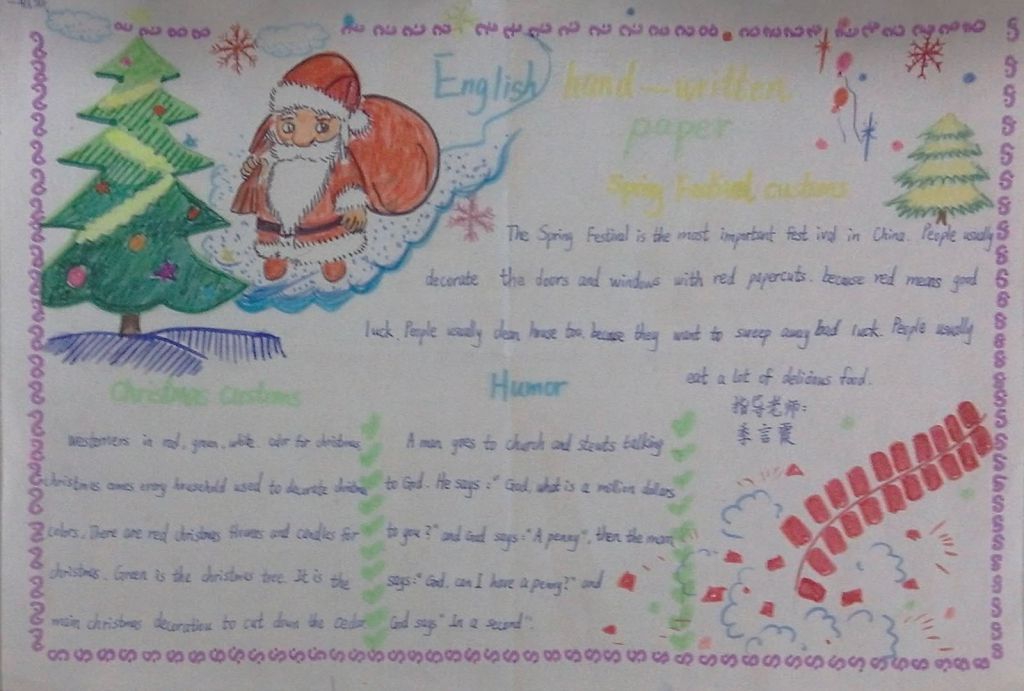 English hand-written
paper
Spring Festival customs
The Spring Festival is the most important fest ival in China. People usually
decorate the doors and windows with red papercuts. because red means good
luck. People usually clean house too. because they want to sweep away bad luck. People usually
eat a lot of delicious food.
指导老师:
季言霞
Christmas customs
westerners in red, green, white. color for christmas
christmas comes every household used to decorate
colors. There are red christmas flowers and candles for
christmas. Green is the christmas tree. It is the
main christmas decoration to cut down the cedar
Humor
A man goes to church and starts talking
to God. He says:" God, what is a million dollars
to you?" and God says:"A penny", then the man
says:"God, can I have a penny?" and
God says" In a second".